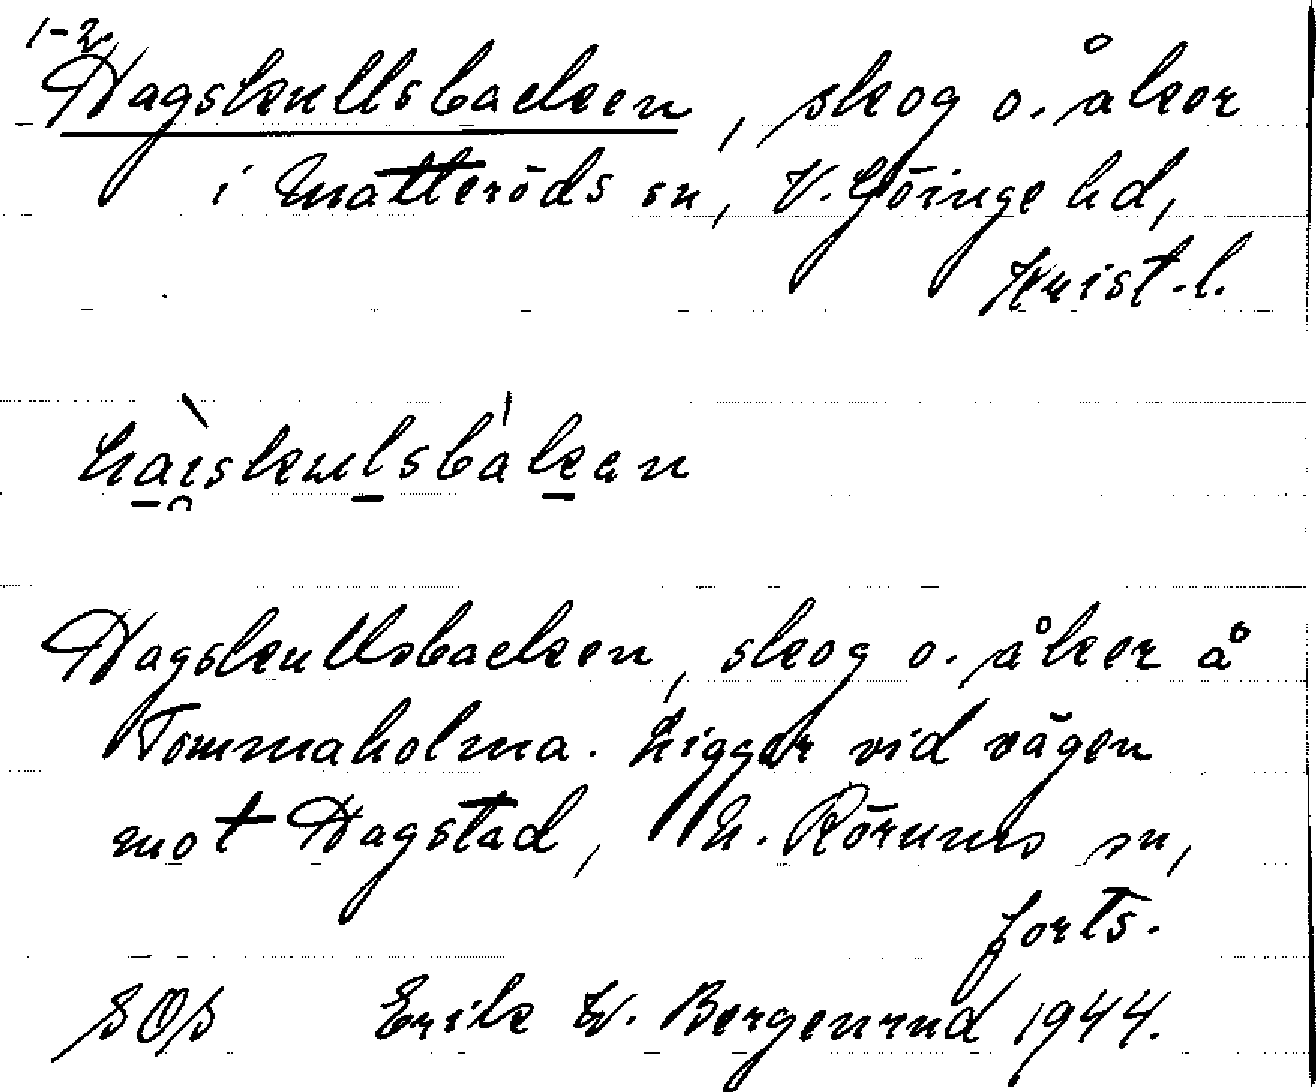 1-2.
Hagskullsbacken, skog o. åker
i Matteröds sn, V. Göinge hd,
Krist.l.
hài̯skulsbákan
Hagskullsbacken, skog o. åker å
Tommaholma. Ligger vid vägen
mot Hagstad, N. Rörums sn,
forts.
SOS Erik W. Bergenrud 1944.